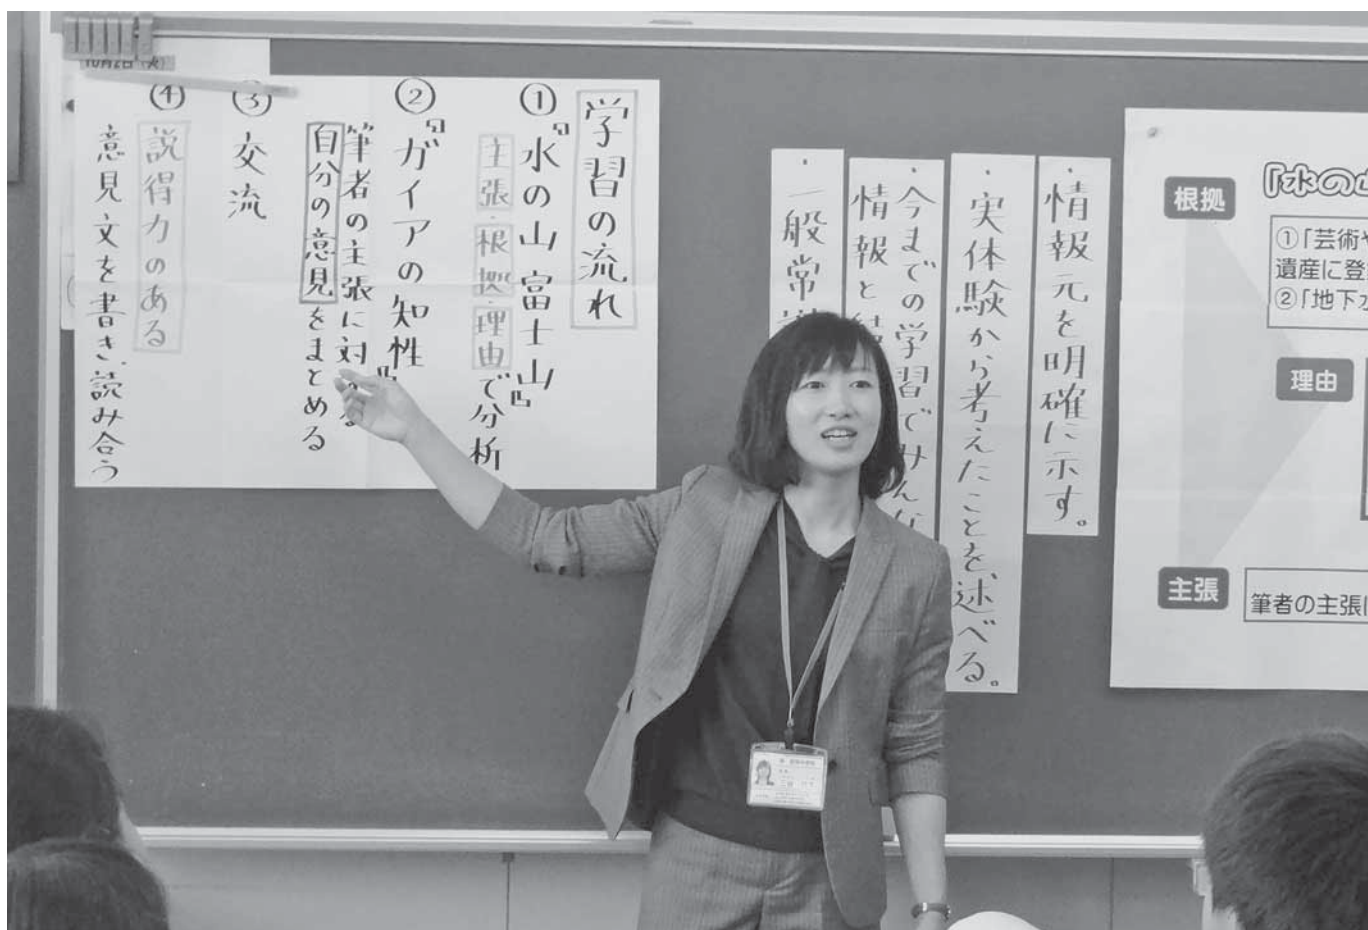 10月2日(火)
学習の流れ
①『水の山 富士山』
主張・根拠・理由で分析
②『ガイアの知性』
筆者の主張に対する
自分の意見をまとめる
③交流
④説得力のある
意見文を書き、読み合う
・情報元を明確に示す。
・実体験から考えたことを、述べる。
・今までの学習でみんな
情報と
・一般常
根拠
『水の
①「芸術
遺産に登
②「地下
理由
主張
筆者の主張